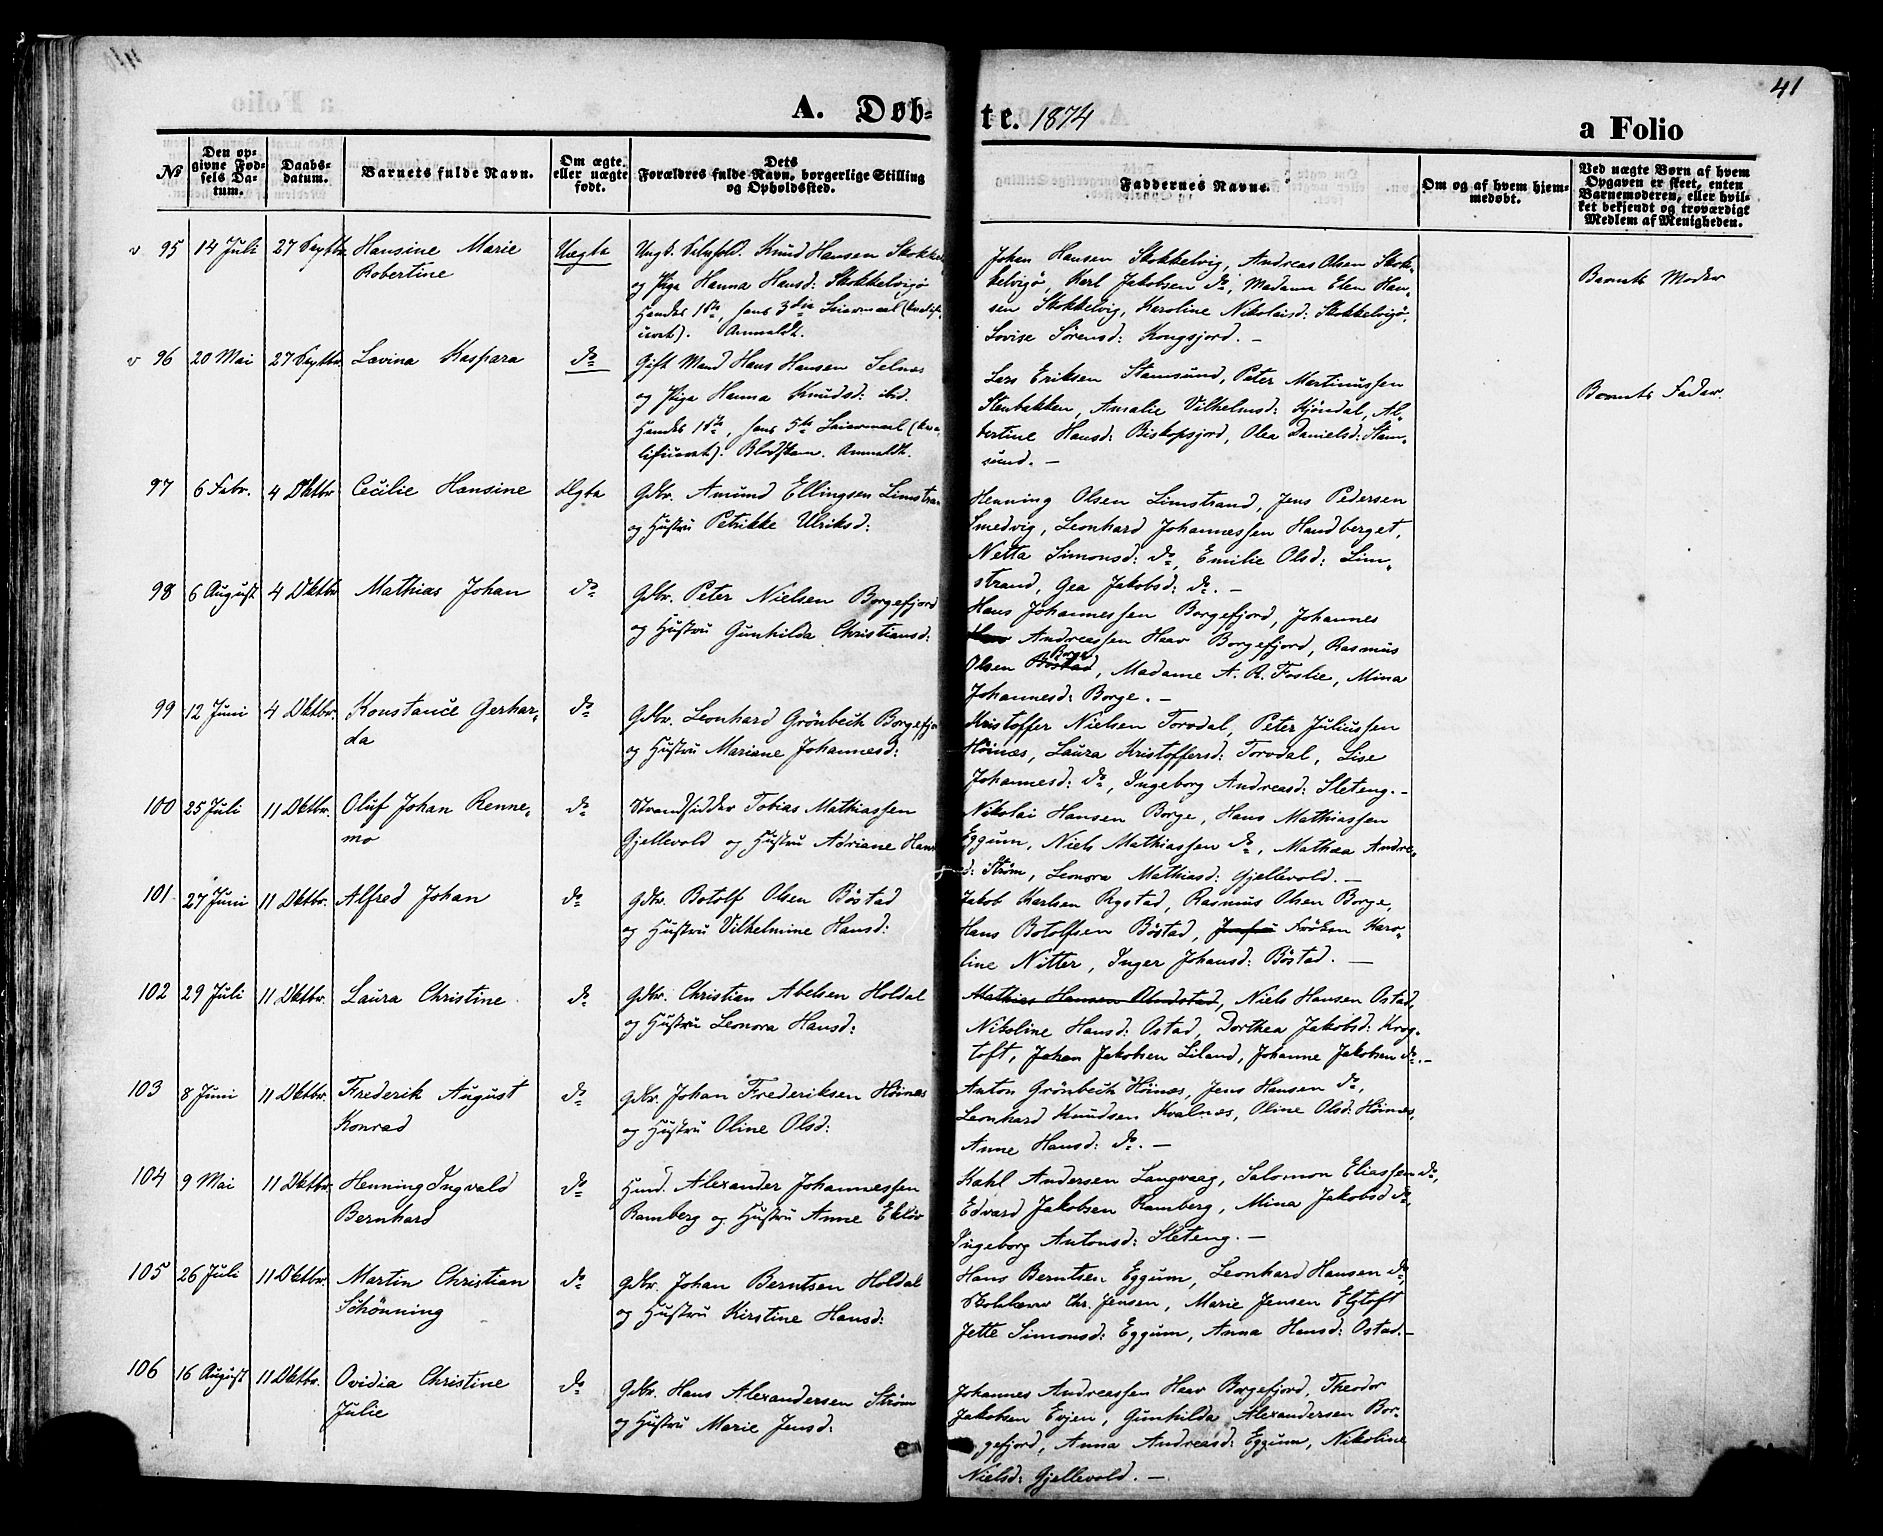 41
A. Døb-
te. 1874
a Folio
No
Den op-
givne Fød-
sels Da-
tum.
Daabs-
datum.
Barnets fulde Navn.
Om ægte
eller uægte
født.
Dets
Forældres fulde Navn, borgerlige Stilling
og Opholdssted.
Faddernes Navne.
Om og af hvem hjem-
medøbt.
Ved uægte Børn af hvem
Opgaven er skeet, enten
Barnemoderen, eller hvil-
ket bekjendt og troværdigt
Medlem af Menigheden.
v 95 14 Juli 27 Septbr. Hansine Marie
Robertine
Uægte
Ungk. Selvfold. Knud Hansen Stokke
og Pige Hanna Hansd: Stokkelvigø
Hendes 1ste, hans 3die Leiermaal
Anmeldt.
Johan Hansen Stokkelvig, Andreas Olsen Stok-
kelvigø, Karl Jakobsen do, Madam Elen Han-
sen Stokkelvig, Karoline Nikolaisd: Stokkelvigø,
Lovise Sørensd: Kongsjord. -
Barnets Moder
v 96 20 Mai 27 Septbr. Lavina Kaspara
do
Gift Mand Hans Hansen Selnes
og Pige Hanna Knudsd: ibd.
Hendes 1ste, hans 5te Leiermaal
Anmeldt.
Lars Eriksen Stamsund, Peter Martinussen
Stenbakken, Amalie Vilhelmsd: Kjøndal, Al-
bertine Hansd: Biskopsjord, Olea Danielsd: Stam-
sund. -
Barnets Fader.
97 6 Febr. 4 Oktbr Cecilie Hansine
Ægte
Gdbr. Amund Ellingsen Limstran
og Hustru Petrikke Ulriksd:
Henning Olsen Limstrand, Jens Pedersen
Smedvig, Leonhard Johannessen Handberget,
Netta Simonsd: do, Emilie Olsd: Lim-
strand, Gea Jakobsd: do. -
98 6 August 4 Oktbr Mathias Johan
do
Gdbr. Peter Nielsen Borgefjord
og Hustru Gunhilda Christiansd:
Hans Johannessen Borgefjord, Johannes
Andreassen Haav Borgefjord, Rasmus
Olsen Bøstad Borge, Madame A. R. Foslie, Mina
Johannesd: Borge. -
99 12 Juni 4 Oktbr. Konstance Gerhar-
da
do
Gdbr. Leonhard Grönbech Borgefj
og Hustru Mariane Johannesd:
Kristoffer Nielsen Torvdal, Peter Juliussen
Höines, Laura Kristoffersd: Torvdal, Lise
Johannesd: do, Ingeborg Andreasd: Sleteng. -
100 25 Juli 11 Oktbr. Oluf Johan Renne-
mo
do
Strandsidder Tobias Mathiassen
Gjellevold og Hustru Adriane Hans
Nikolai Hansen Borge, Hans Mathiassen
Eggum, Niels Mathiassen do, Mathea Andre-
d: Strøm, Leonora Mathiasd: Gjellevold. -
101 27 Juni 11 Oktbr. Alfred Johan
do
Gdbr. Botolf Olsen Böstad
og Hustru Vilhelmine Hansd:
Jakob Karlsen Rystad, Rasmus Olsen Borge,
Hans Botolfsen Böstad, Jomfru Frøken Karo-
line Nitter, Inger Johansd: Böstad. -
102 29 Juli 11 Oktbr. Laura Christine
do
Gdbr. Christian Abelsen Holdal
og Hustru Leonora Hansd:
Mathias Hansen Almdstad, Niels Hansen Ostad,
Nikoline Hansd: Ostad, Dorthea Jakobsd: Krog-
toft, Johan Jakobsen Liland, Johanne Jakobsen do. -
103 8 Juni 11 Oktbr. Frederik August
Konrad
do
Gdbr. Johan Frederiksen Höines
og Hustru Oline Olsd:
Anton Grönbech Höines, Jens Hansen do,
Leonhard Knudsen Kvalnes, Oline Olsd: Höines,
Anne Hansd: do. -
104 9 Mai 11 Oktbr. Henning Ingvald
Bernhard
do
Husm. Alexander Johannessen
Ramberg og Hustru Anne Eklöv
Kahl Andersen Langvaag, Salomon Eliassen do,
Edvard Jakobsen Ramberg, Mina Jakobsd do,
Ingeborg Antonsd: Sleteng. -
105 26 Juli 11 Oktbr. Martin Christian
Schönning
do
Gdbr. Johan Berntsen Holdal
og Hustru Kirstine Hansd:
Hans Berntsen Eggum, Leonhard Hansen do,
Skolelærer Chr. Jensen, Marie Jensen Elgtoft
Jette Simonsd: Eggum, Anna Hansd: Ostad. -
106 16 August 11 Oktbr. Ovidia Christine
Julie
do
Gdbr. Hans Alexandersen Strøm
og Hustru Marie Jensd:
Johannes Andreassen Haav Borgefjord, Theodor
Jakobsen Evjen, Gunhilda Alexandersen Bor-
gefjord, Anna Andreasd: Eggum, Nikoline
Nielsd: Gjellevold. -